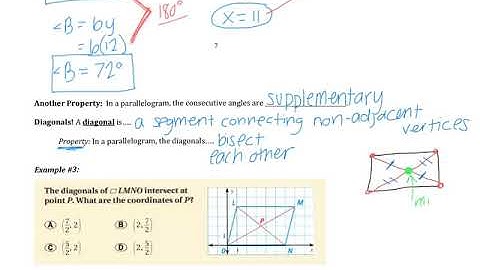 180°
∠B = 6y
= 6(12)
∠B = 72°
x = 11
7
Another Property: In a parallelogram, the consecutive angles are supplementary
Diagonals! A diagonal is.... a segment connecting non-adjacent vertices
Property: In a parallelogram, the diagonals.... bisect each other
Example #3:
The diagonals of ▱LMNO intersect at
point P. What are the coordinates of P?
A (7/2, 2) B (2, 7/2)
C (5/2, 2) D (2, 5/2)
y
L M
P
1
O 1 N